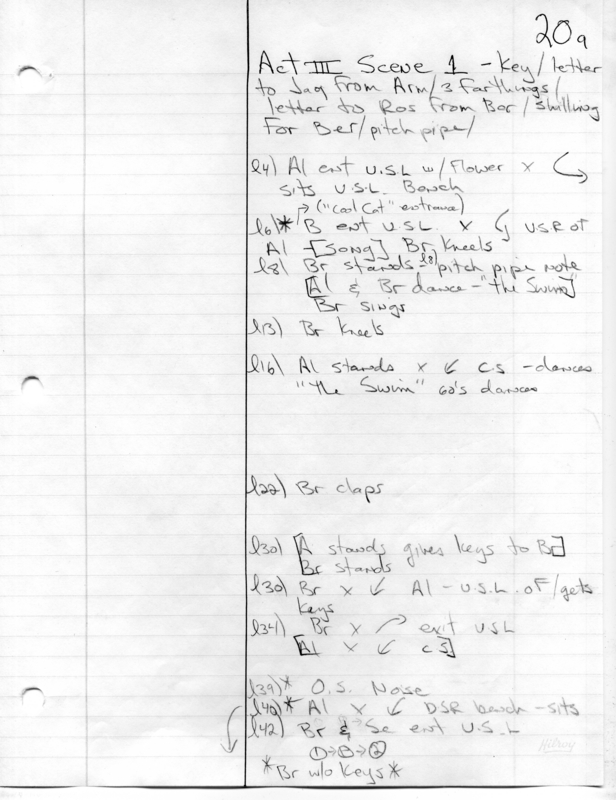 20a
Act III Scene 1 - Key/letter
to Jaq from Arm/3 farthings/
letter to Ros from Ber/shilling
For Ber/pitch pipe/
l4) Al ent U.S.L w/ Flower x ⤷
sits U.S.L. Bench
→ ("Cool Cat" entrance)
l6)* B ent U.S.L. x ⤷ U.S.R of
Al -[Song] Br Kneels
l8) Br stands - l8) pitch pipe note
[Al & Br dance - "the Swim"]
Br sings
l13) Br Kneels
l16) Al stands x ↙ C.S - dances
"the Swim" 60's dances
l22) Br claps
l30) [A stands gives keys to Br]
Br stands
l30) Br x ↙ Al - U.S.L. of/gets
keys
l34) Br x ↗ exit USL
[Al x ↙ CS]
l39)* O.S. Noise
l40)* Al x ↙ DSR bench - sits
l42) Br & Se ent U.S.L
①→③→②
*Br w/o Keys*
Hilroy